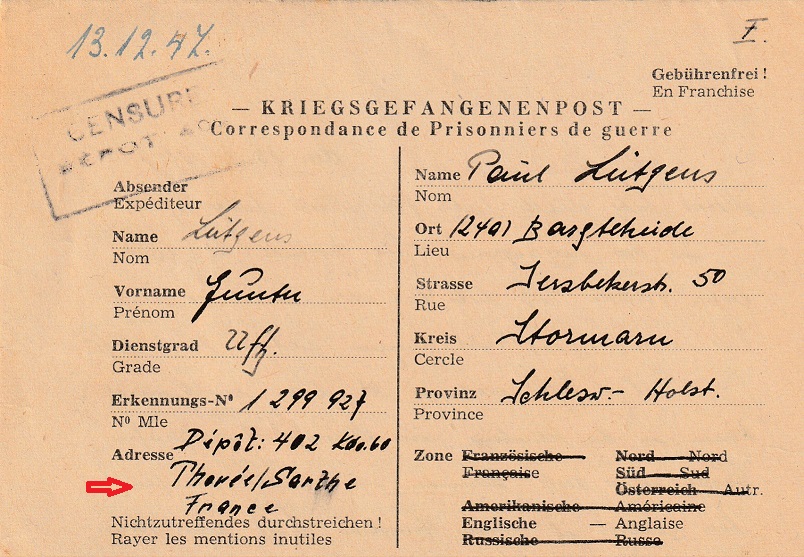 13.12.47.
F.
Gebührenfrei!
En Franchise
CENSURE
DEPOT
— KRIEGSGEFANGENENPOST —
Correspondance de Prisonniers de guerre
Absender
Expéditeur
Name Lütgens
Nom
Vorname Günter
Prénom
Dienstgrad Uffz.
Grade
Erkennungs-Nº 1 299 927
Nº Mle
Adresse Dépôt: 402 Kdo. 60
Thorée/Sarthe
France
Nichtzutreffendes durchstreichen!
Rayer les mentions inutiles
Name Paul Lütgens
Nom
Ort (24a) Bargteheide
Lieu
Strasse Jersbekerstr. 50
Rue
Kreis Stormarn
Cercle
Provinz Schlesw.- Holst.
Province
Zone Französische Nord — Nord
Française Süd — Sud
Österreich — Autr.
Amerikanische — Américaine
Englische — Anglaise
Russische — Russe